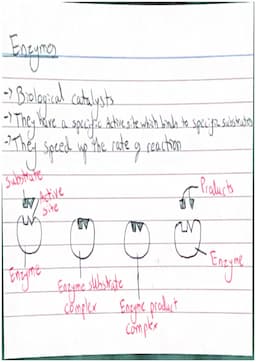 Enzymes
-> Biological catalysts
-> They have a specific Active site which binds to specific substrates
-> They speed up the rate of reaction
Substrate
Active site
Products
Enzyme
Enzyme substrate complex
Enzyme product complex
Enzyme